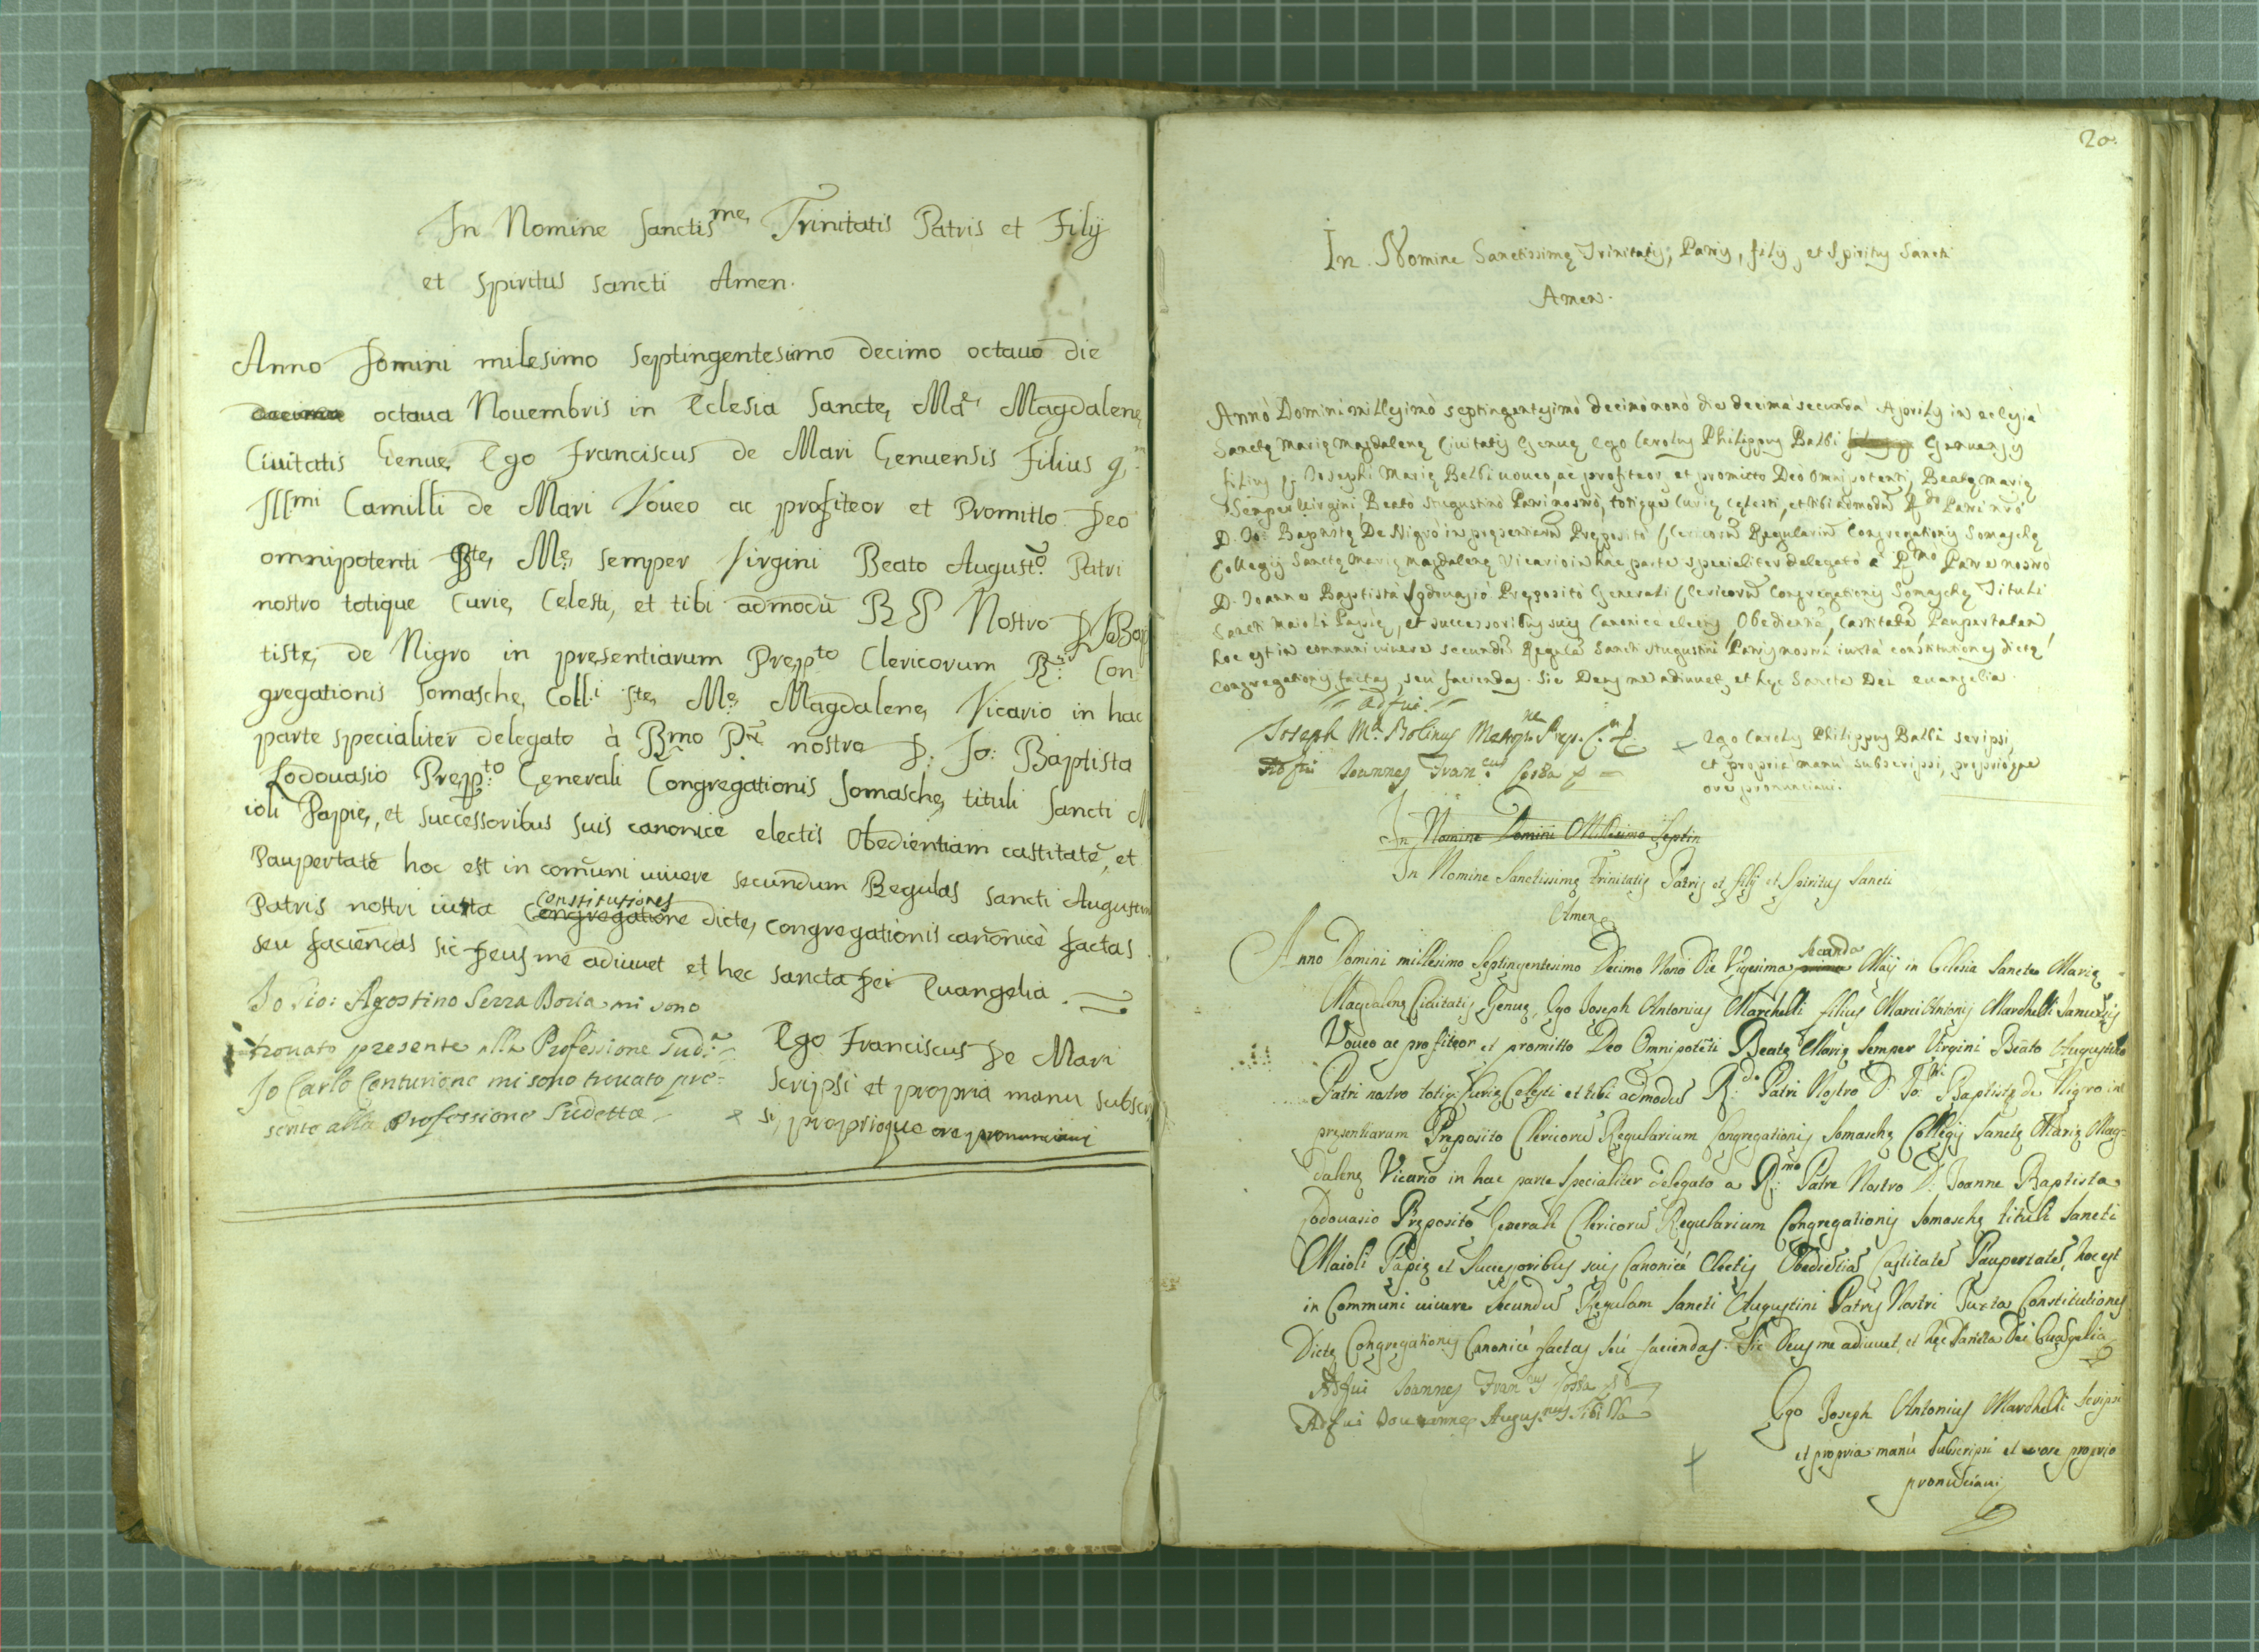 In Nomine Sanctis^me Trinitatis Patris et Filij
et Spiritus Sancti Amen.
Anno Domini milesimo Septingentesimo decimo octauo die
octaua Nouembris in Eclesia Sancte M^a Magdalene
Ciuitatis Genue Ego Franciscus de Mari Genuensis Filius q^m
Ill^mi Camilli de Mari Voueo ac profiteor et Promitto Deo
omnipotenti B^te M^e semper Virgini Beato August^o Patri
nostro totique Curie Celesti, et tibi admodũ R P Nostro D Jo Bap
tiste de Nigro in presentiarum Prep^to Clericorum R^i Con
gregationis Somasche Coll.i S^te M^e Magdalene Vicario in hac
parte specialiter delegato à R^mo P^re nostro D: Jo: Baptista
Lodouasio Prep^to Generali Congregationis Somasche tituli Sancti M
ioli Papie, et successoribus suis canonicè electis Obedientiam castitatẽ, et
Paupertatẽ hoc est in comũni uiuere secundum Regulas Sancti Augustin
Patris nostri iuxta Constitutiones Congregatione dicte congregationis canonicè factas
seu faciendas sic Deus me adiuuet et hec Sancta Dei Euangelia.
Io Gio: Agostino Serra Boria mi sono
trouato presente alla Professione Sud.^a
Io Carlo Centurione mi sono trouato pre=
sente alla Professione Sudetta
Ego Franciscus De Mari
scripsi et propria manu subscri
si, proprioque ore pronunciaui
20.
In Nomine Sanctissimę Trinitatis, Patris, filij, et Spiritus Sancti
Amen.
Annò Domini millesimò septingentesimò decimònonò die decima secunda Aprilis in eclesia
Sanctę Marię Magdalenę Ciuitatis Genuę Ego Carolus Philippus Balbi Genuensis
filius Josephi Marię Balbi uoueo, ac profiteor, et promitto Deò Omnipotenti, Beatę Marię
Semper Uirgini, Beatò Augustinò Patri nostrò, totique Curię cęlesti, et tibi admodũ R^do Patri nr̃ò
D. Jo: Baptistę De Nigrò in pręsentiarũ Prępositò Clericorũ Regulariũ Congregationis Somaschę
Collegij Sanctę Marię Magdalenę Vicario in hac parte specialiter delegatò à R^mo Patre nostrò
D. Joanne Baptista Lodouasiò Prępositò Generali Clericorũ Congregationis Somaschę Tituli
Sancti Maioli Papię, et successoribus suis Canonicè electis, Obedientiã, Castitatẽ Paupertatem
hoc est in communi uiuere secundũ Regulã Sancti Augustini Patris nostri iuxta constitutiones dictę
congregationis factas, seu faciendas. Sic Deus me adiuuet, et hęc Sancta Dei euangelia.
adfui
Joseph M^a
Adfui Joannes Fran^cus Cossa
Ego Carolus Philippus Balbi scripsi,
et propria manu subscripsi, proprioque
ore pronunciaui.
In Nomine Domini Millesimo Septin
In Nomine Sanctissimę Trinitatis Patris et filij et Spiritus Sancti
Amen
Anno Domini millesimo Septingentesimo Decimo Nonò Die Vigesima Secunda Maij in Eclesia Sanctę Marię
Magdalenę Ciuitatis Genuę, Ego Joseph Antonius Marchelli filius Marci Antonij Marchelli Januensis
Voueo ac profiteor et promitto Deo Omnipotẽti Beatę Marię Semper Virgini Beato Augustino
Patri nostro totiq; Curię Celesti et tibi admodũ R:^do Patri Nostro D: Jo: Baptistę de Nigro in
pręsentiarum Pręposito Clericorũ Regularium Congregationis Somaschę Collegij Sanctę Marię Mag=
dalenę Vicario in hac parte Specialiter delegato a R:^mo Patre Nostro D: Joanne Baptista
Lodouasio Pręposito Generali Clericorũ Regularium Congregationis Somaschę tituli Sancti
Maioli Papię et Successoribus suis Canonicè Electis Obediẽtiã Castitatẽ Paupertatẽ, hoc est
in Communi uiuere Secundũ Regulam Sancti Augustini Patris Nostri Juxta Constitutiones
Dictę Congregationis Canonicè factas seù faciendas. Sic Deus me adiuuet, et hęc Sancta Dei Euãgelia
Adfui Joannes Fran^cus Cossa
Adfui Joannes Augus.^nus
Ego Joseph Antonius Marchelli scripsi
et propria manù Subscripsi et ore proprio
pronũciaui